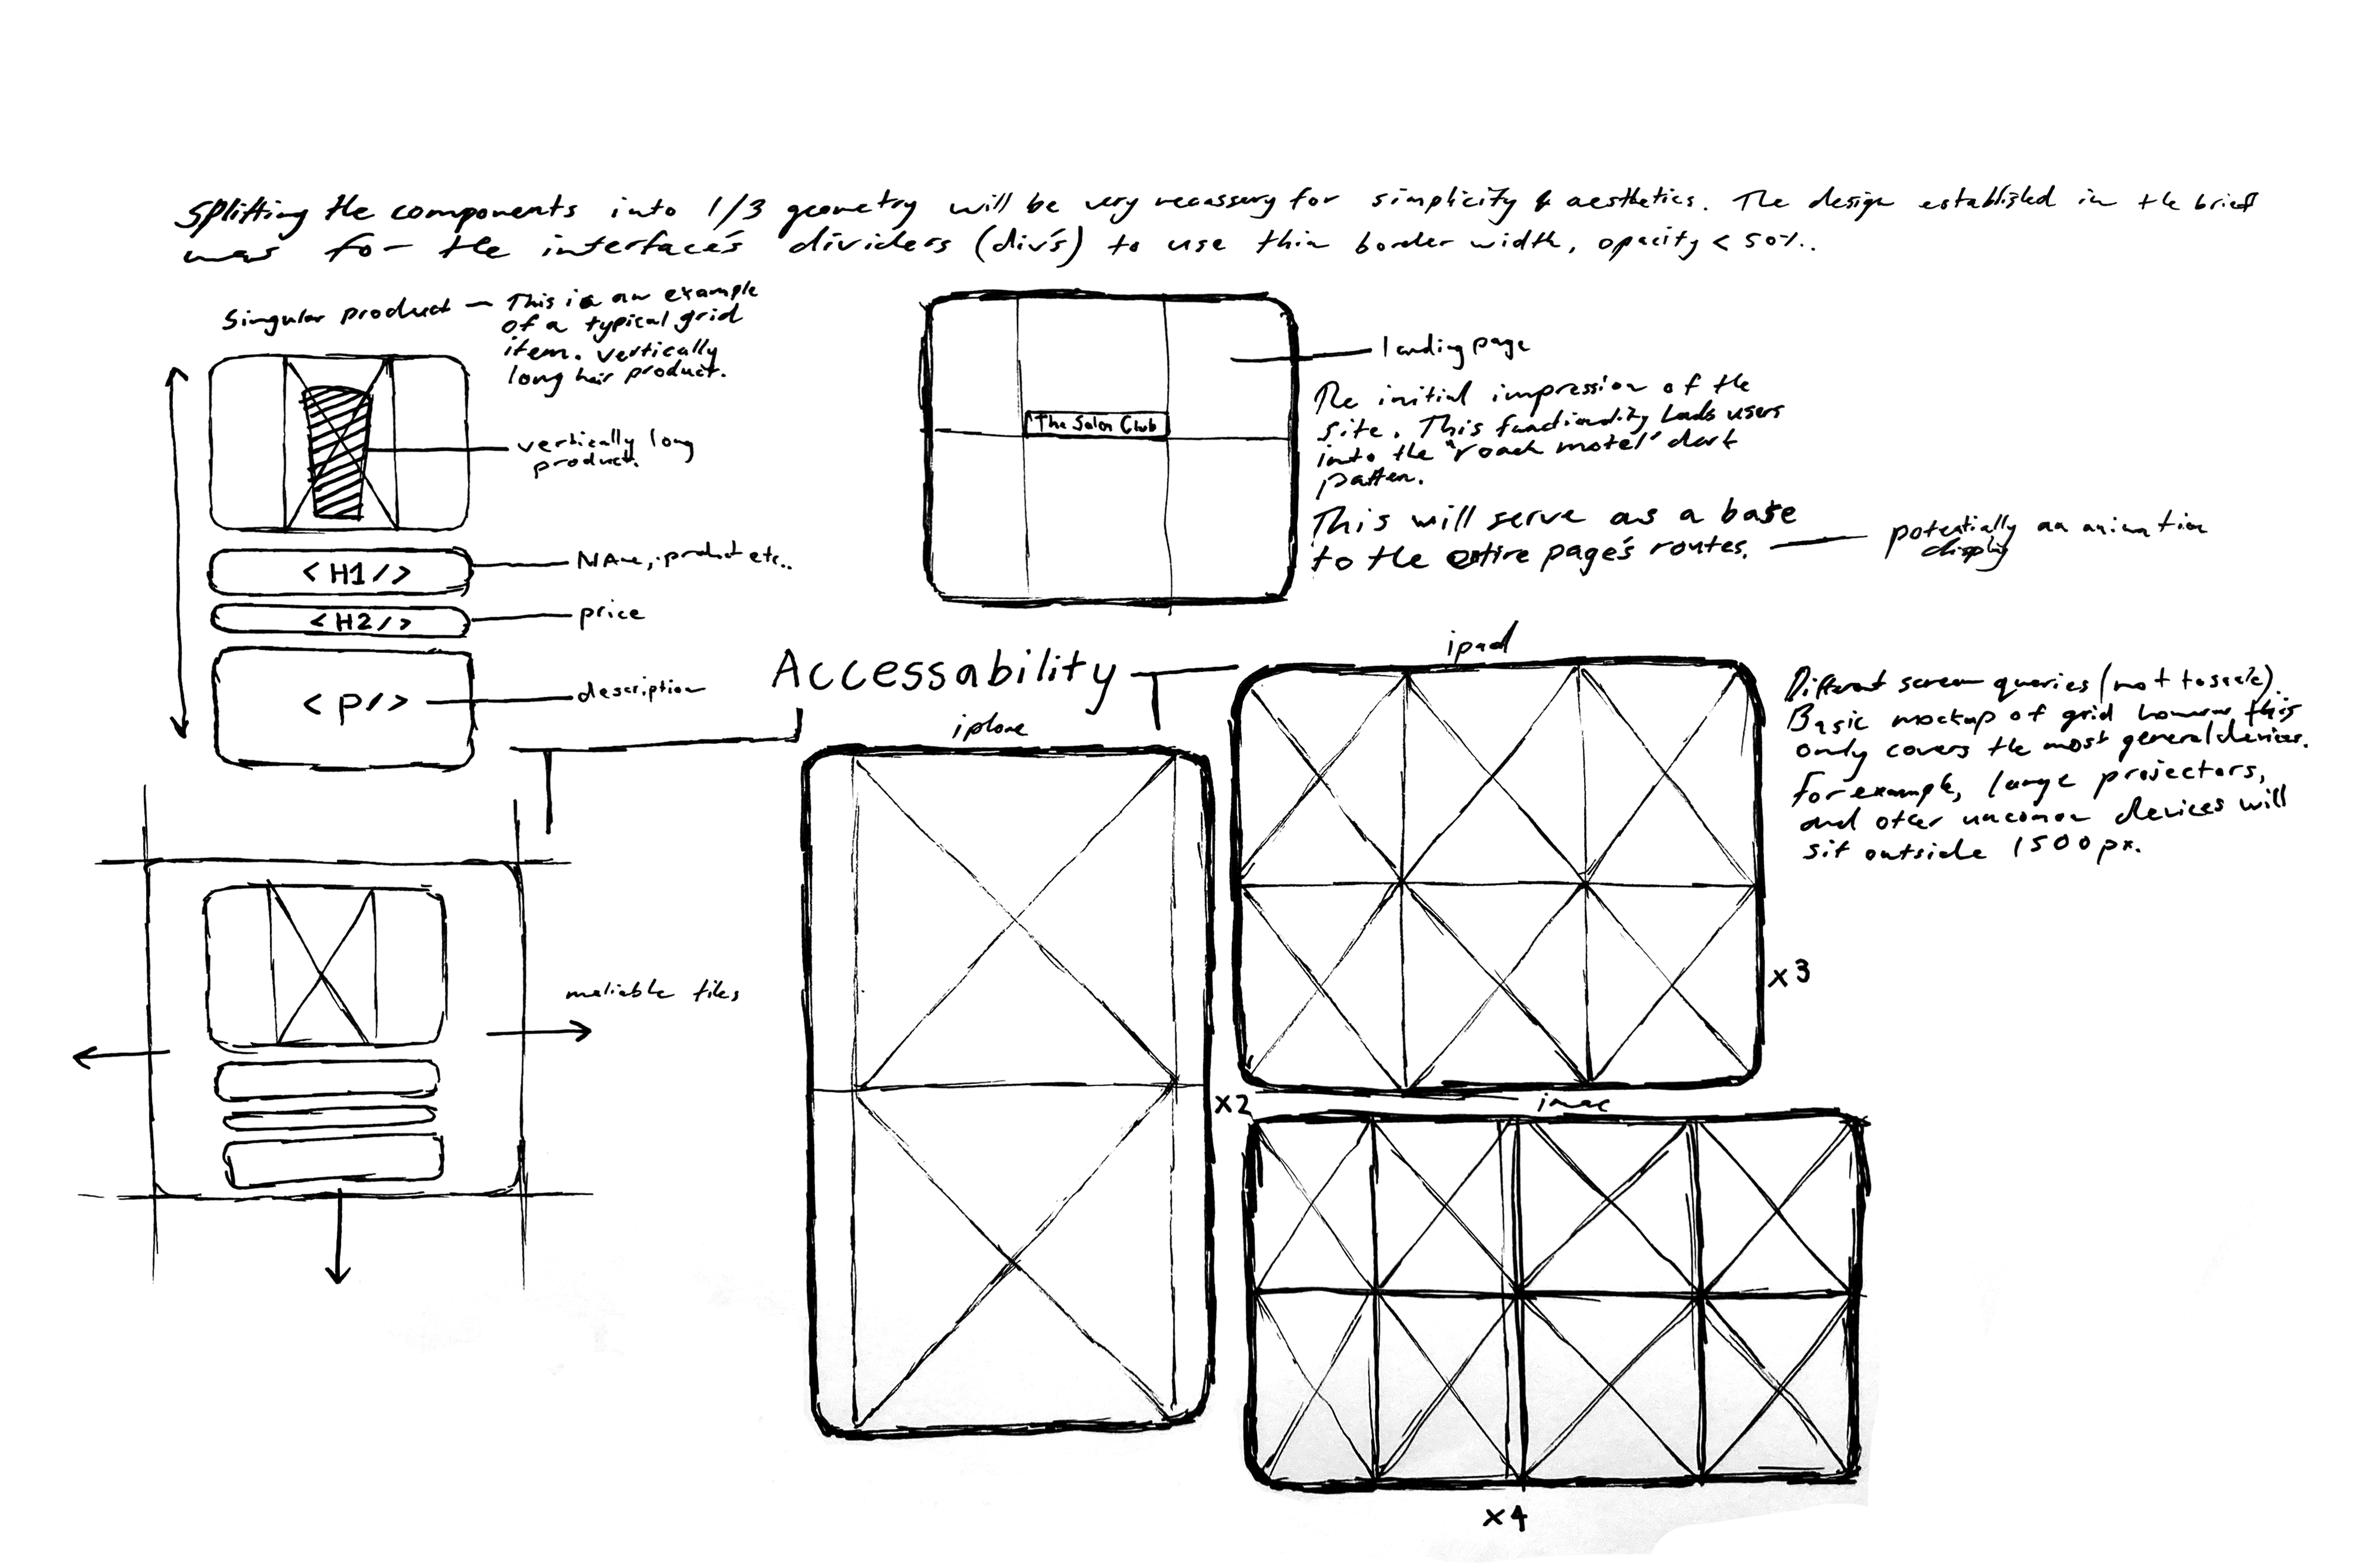 Splitting the components into 1/3 geometry will be very necassary for simplicity & aesthetics. The design established in the brief
was for the interface's dividers (div's) to use thin border width, opacity < 50%..
Singular product — This is an example
of a typical grid
item. vertically
long hair product.
vertically long
product.
<H1/>
NAme, product etc..
<H2/>
price
<p/>
description
The Salon Club
landing page
The initial impression of the
site. This functionality leads users
into the "roach motel" dark
patten.
This will serve as a base
to the entire page's routes. — potentially an animation
display
Accessability
iphone
ipad
x3
Different screen queries (not to scale).
Basic mockup of grid however this
only covers the most general devices.
For example, large projectors,
and other uncommon devices will
sit outside 1500px.
maliable tiles
x2
imac
x4